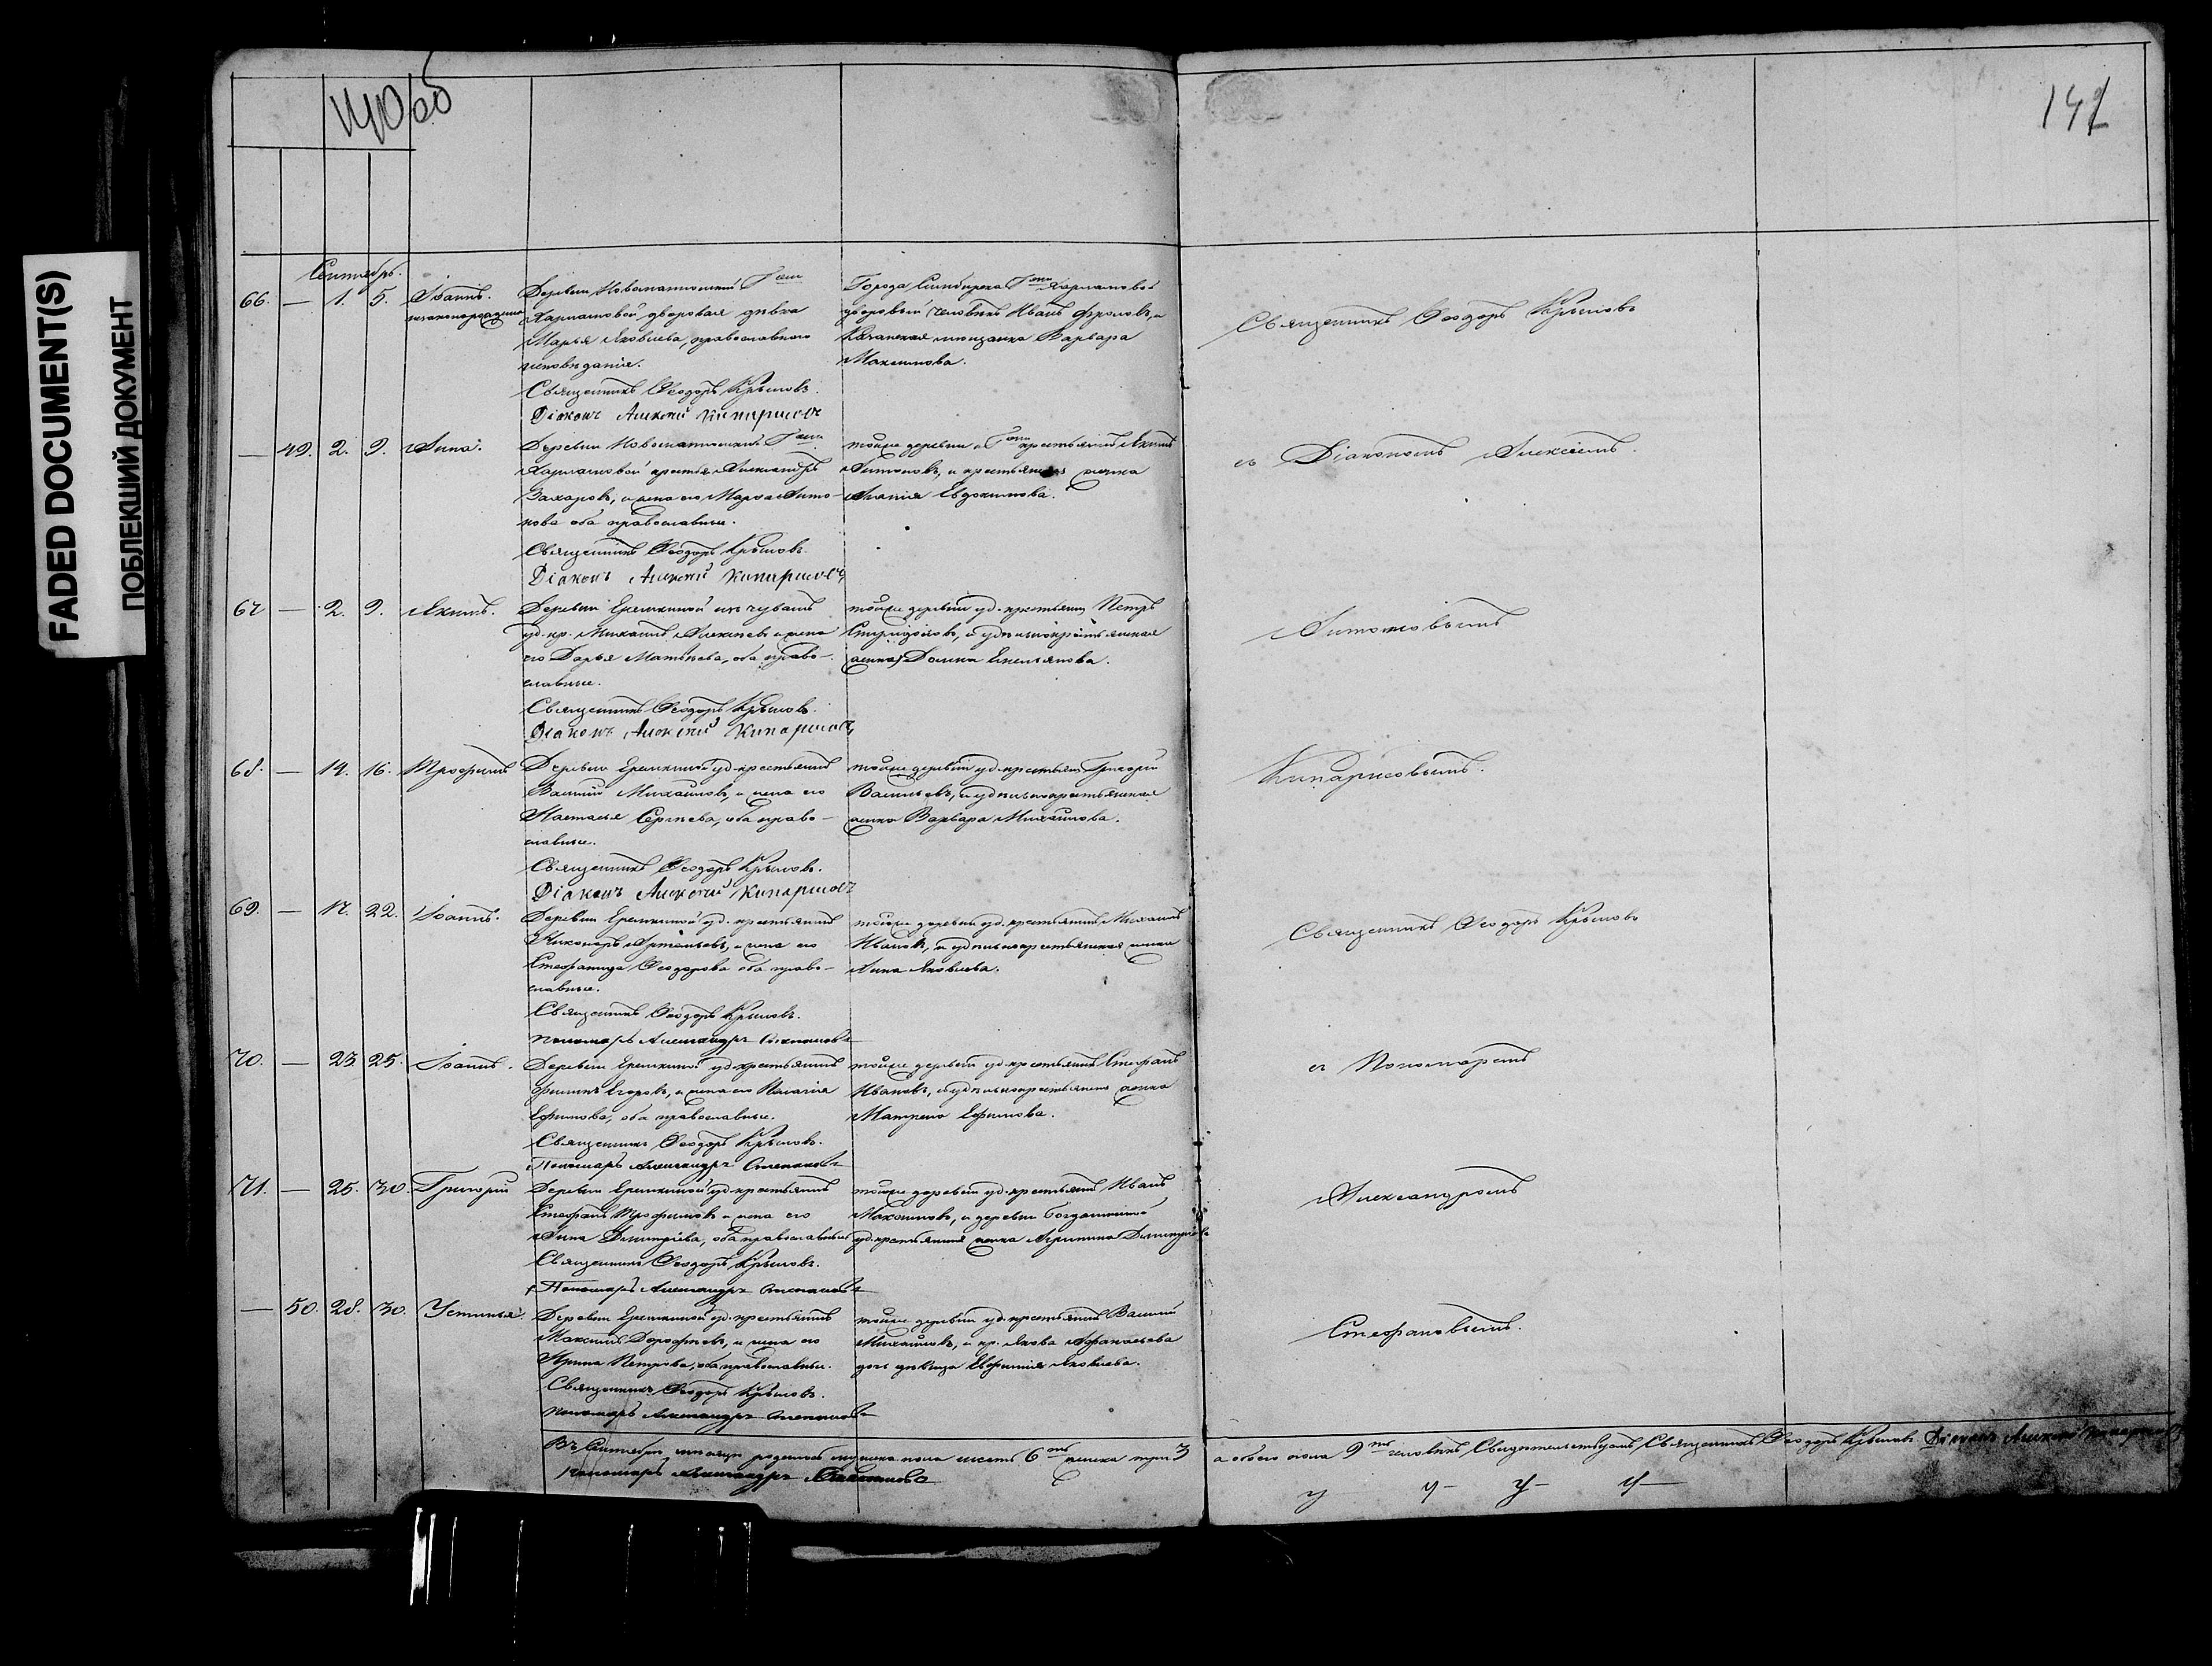 140 об
141
FADED DOCUMENT(S)
ПОБЛЕКШИЙ ДОКУМЕНТ
Сентябрь.
66. — 1. 5. Іоаннъ. незаконорожден
Деревни Г-жи
Харламовой дворовая дѣвка
Марья Яковлева, православнаго
исповѣданія.
Священникъ Ѳеодоръ Крыловъ.
Діаконъ Алексѣй Кипарисовъ
Города Симбирска Г-жи Харламовой
дворовый человѣкъ Иванъ Фроловъ, и
Казанская мещанка Варвара
Максимова.
Священникъ Ѳеодоръ Крыловъ
— 49. 2. 9. Анна.
Деревни Г-жи
Харламовой крестья Александръ
Захаровъ, и жена его Марья Анто-
нова оба православные.
Священникъ Ѳеодоръ Крыловъ.
Діаконъ Алексѣй Кипарисовъ
тойже деревни и Г-жи крестьянинъ Якимъ
Антоновъ, и крестьянска жонка
Евдокимова.
съ Діакономъ Алексіемъ.
67 — 2. 9. Якимъ.
Деревни Еремкиной изъ чувашъ
уд. кр. Михаилъ Алексѣевъ и жена
его Дарья Матвѣева, оба право-
славные.
Священникъ Ѳеодоръ Крыловъ.
Діаконъ Алексѣй Кипарисовъ
тойже деревни уд. крестьянин Петръ
Спиридоновъ, и удѣльнокрестьянская
жонка Домна Емельянова.
Кипарисовымъ.
68. — 14. 16. Трофимъ
Деревни Еремкиной уд. крестьянинъ
Василій Михайловъ, и жена его
Настасья Сергѣева, оба право-
славные.
Священникъ Ѳеодоръ Крыловъ.
Діаконъ Алексѣй Кипарисовъ
тойже деревни уд. крестьян Григорій
Васильевъ, и удѣльнокрестьянская
жонка Варвара Михайлова.
69. — 17. 22. Іоаннъ.
Деревни Еремкиной уд. крестьянинъ
Никаноръ Артемьевъ, и жена его
Стефанида Ѳеодорова оба право-
славные.
Священникъ Ѳеодоръ Крыловъ.
Пономарь Александръ Степановъ
тойже деревни уд. крестьянинъ Михаилъ
Ивановъ, и удѣльнокрестьянская жонка
Анна Яковлева.
Священникъ Ѳеодоръ Крыловъ
70. — 23. 25. Іоаннъ.
Деревни Еремкиной уд. крестьянинъ
Филиппъ Егоровъ, и жена его Пелагія
Ефимова, оба православные.
Священникъ Ѳеодоръ Крыловъ.
Пономарь Александръ Степановъ
тойже деревни уд. крестьянинъ Стефанъ
Ивановъ, и удѣльнокрестьянск жонка
Матрена Ефимова.
съ Пономаремъ
71. — 25. 30. Григорій
Деревни Еремкиной уд. крестьянинъ
Стефанъ Трофимовъ и жена его
Анна Дмитріева, оба православные
Священникъ Ѳеодоръ Крыловъ.
Пономарь Александръ Степановъ
тойже деревни уд. крестьянинъ Иванъ
Максимовъ, и деревни Богдашкиной
уд. крестьянская жонка Агрипина Дмитріева
Александромъ
— 50. 28. 30. Устинья.
Деревни Еремкиной уд. крестьянинъ
Максимъ Дорофѣевъ, и жена его
Ирина Петрова, оба православные.
Священникъ Ѳеодоръ Крыловъ.
Пономарь Александръ Степановъ
тойже деревни уд. крестьянинъ Василій
Михайловъ, и кр. Якова Афанасьева
дочь дѣвица Евфимія Яковлева.
Стефановымъ.
Въ Сентябрѣ мѣсяцѣ родилось мужеска пола шесть 6 женска три 3
а обоего пола 9 человѣкъ, Свидѣтельствуемъ Священникъ Ѳеодоръ Крыловъ Діаконъ Алексѣй Кипарисовъ
Пономарь Александръ Степановъ